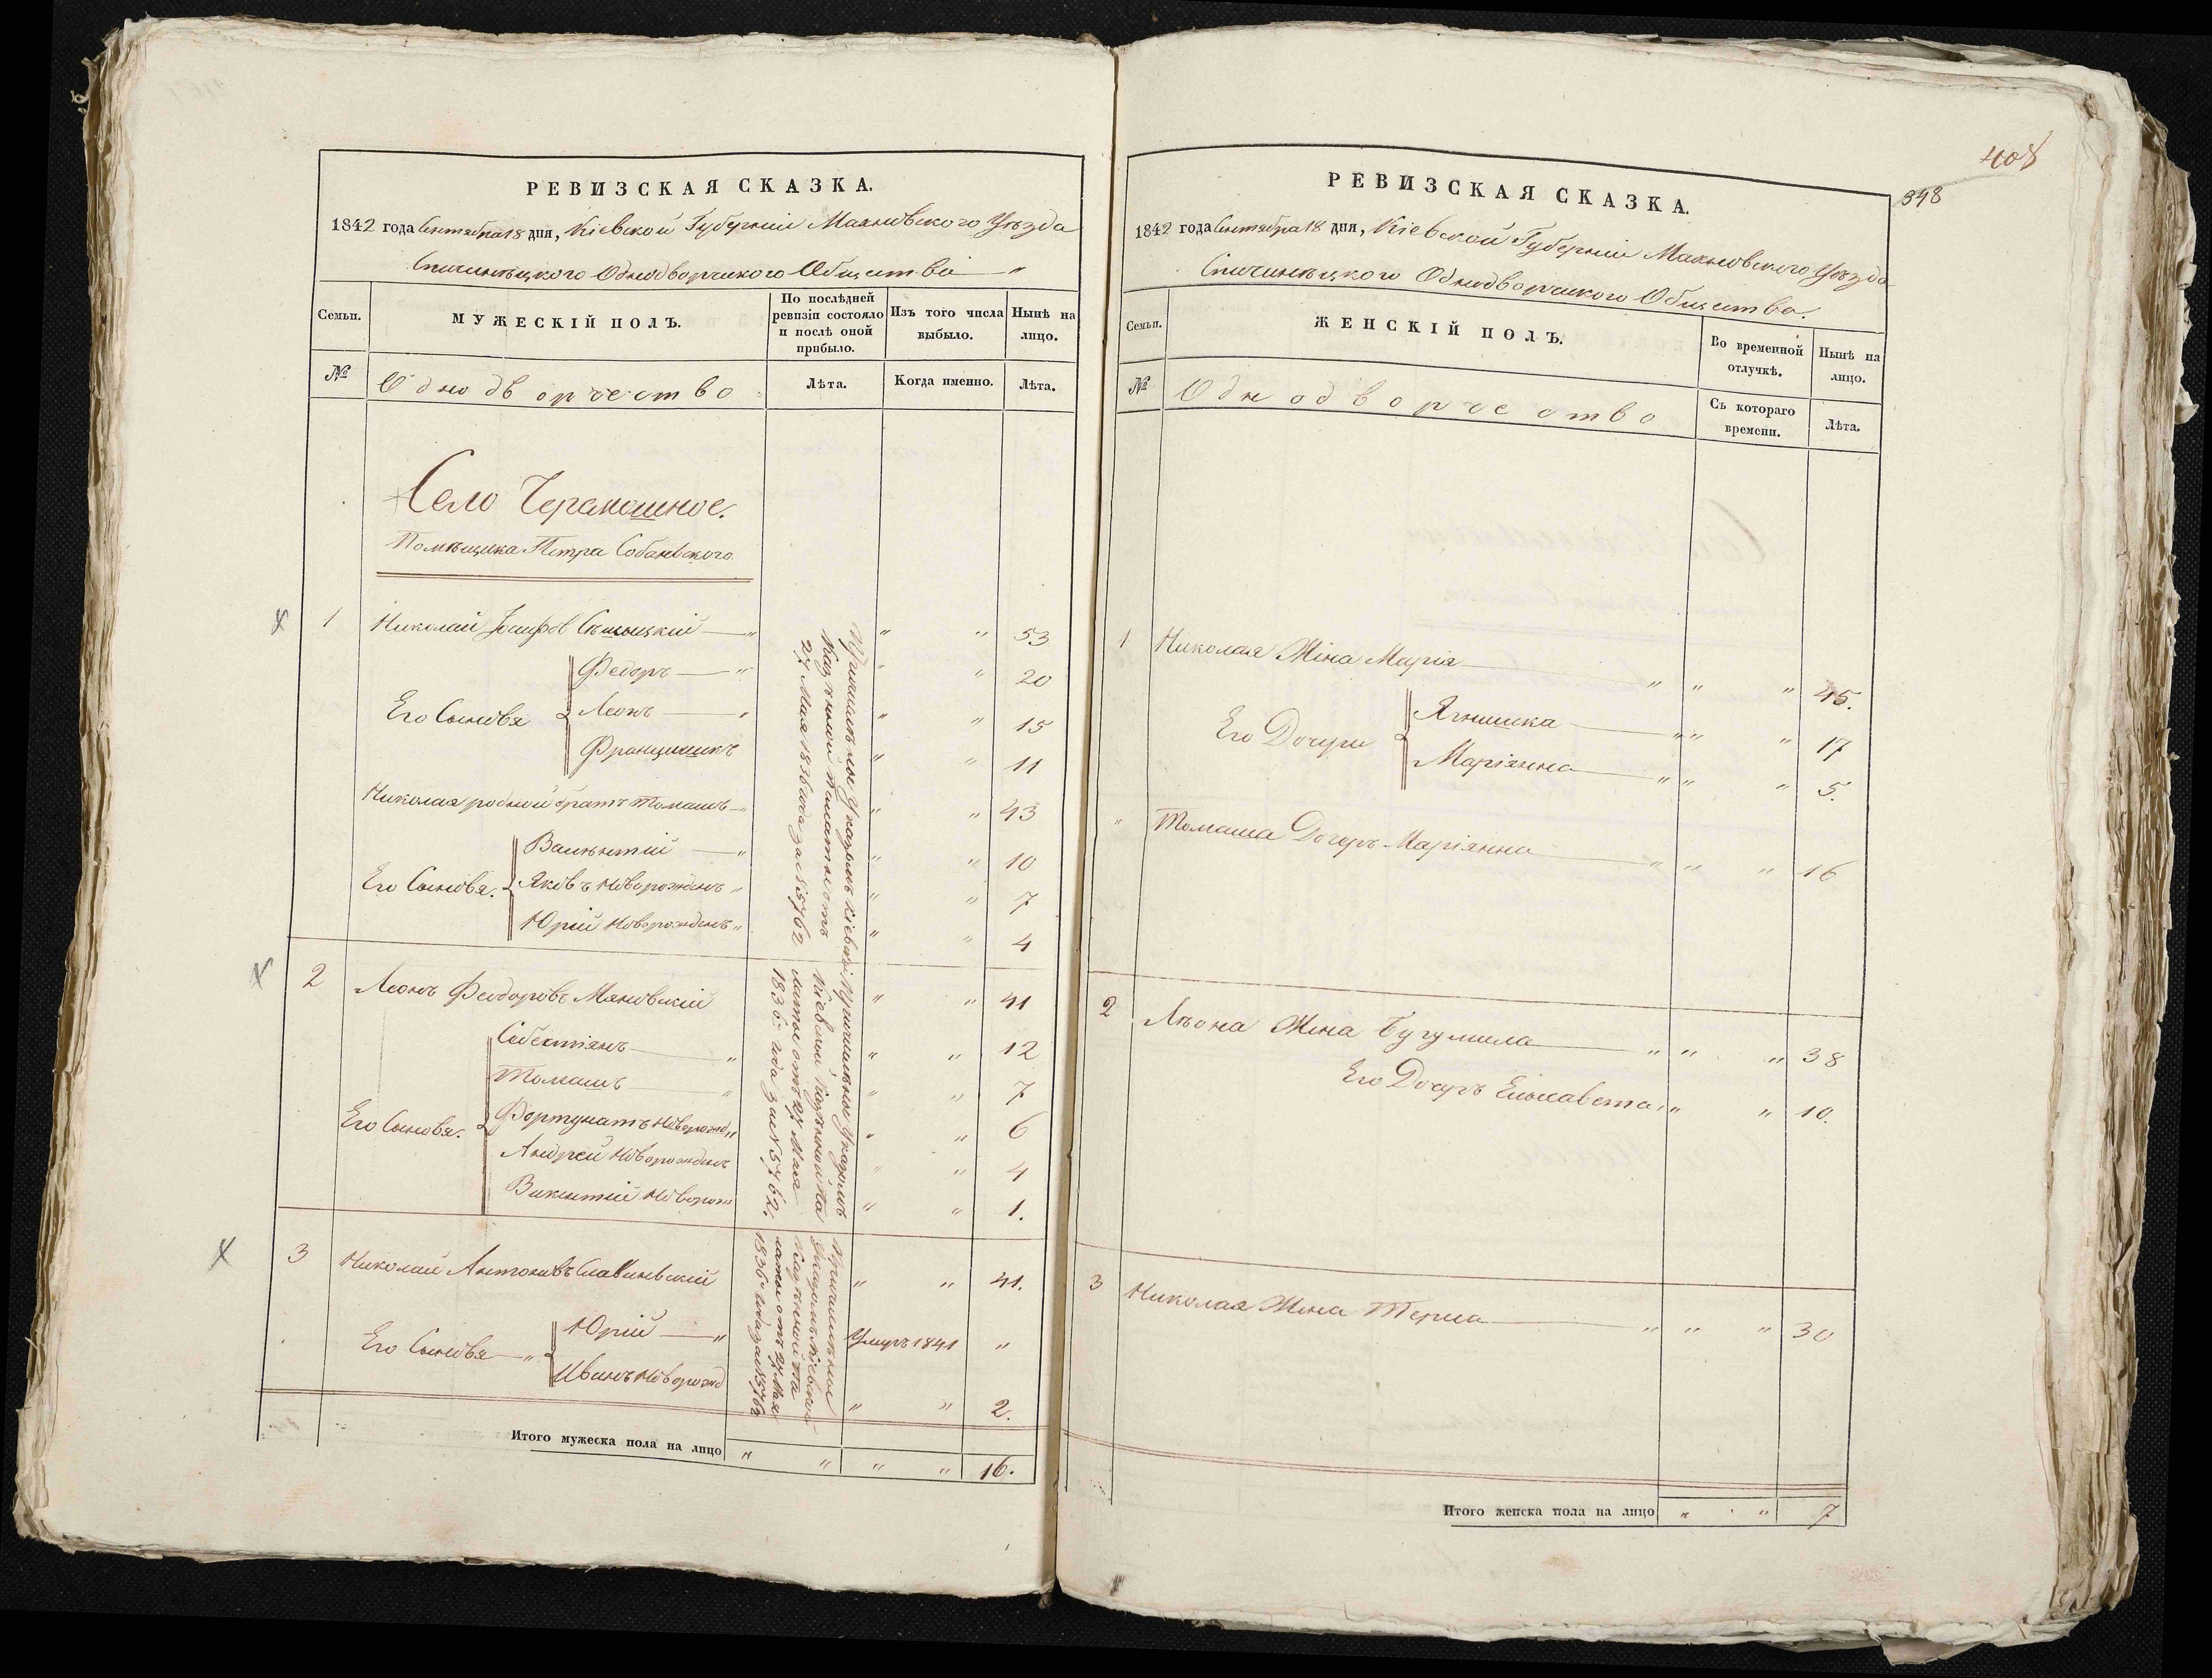 РЕВИЗСКАЯ СКАЗКА.
1842 года Сентября 18 дня, Кіевской Губерніи Махновского Уѣзда
Спичинецкого Однодворческого Общества "
Семьи.
МУЖЕСКІЙ ПОЛЪ.
По послѣдней ревизіи состояло и послѣ оной прибыло.
Изъ того числа выбыло.
Нынѣ на лицо.
№
Однодворчество
Лѣта.
Когда именно.
Лѣта.
Село Черемошное.
Помѣщика Петра Собанского
1 Николай Іосифов " " " 53
Федоръ " " " 20
Его Сыновя Леонъ " " " 15
Францишекъ " " 11
Николая родной братъ Томашъ " " " 43
Валентій " " " 10
Его Сыновя. Яковъ Новорожденъ " " " 7
Юрій Новорожденъ " " " 4
Причисленные Указомъ Кіевской
Казенной Палаты отъ
27 Мая 1836 года за №5762
2 Леонъ Феодоровъ Мяновскій " " 41
Себестіянъ " " " 12
Томашъ " " " 7
Его Сыновя. Фортунатъ Новорожд " " " 6
Андрей Новорожденъ " " 4
Викентій Новорож " " 1.
Причисленные Указомъ
Кіевской Казенной Па
латы отъ 27 Мая
1836 года за №5762.
3 Николай Антоновъ Славинскій " " 41.
Его Сыновя " Юрій " Умеръ 1841 "
Иванъ Новорожд " " 2.
Причисленные
Указомъ Кіевской
Казенной Па
латы отъ 27 Мая
1836 года за №5762
Итого мужеска пола на лицо " " " " 16.
408
348
РЕВИЗСКАЯ СКАЗКА.
1842 года Сентября 18 дня, Кіевской Губерніи Махновского Уѣзда
Спичинецкого Однодворческого Общества.
Семьи.
ЖЕНСКІЙ ПОЛЪ.
Во временной отлучкѣ.
Нынѣ на лицо.
№
Однодворчество
Съ котораго времени.
Лѣта.
1 Николая Жена Марія " " " 45.
Его Дочери Ягнишка " " " 17
Маріянна " " " 5.
" Томаша Дочеръ Маріянна " " " 16
2 Леона Жена Бугумила " " " 38
Его Дочеръ Елисавета " " 10.
3 Николая Жена Тереса " " " 30
Итого женска пола на лицо " " 7